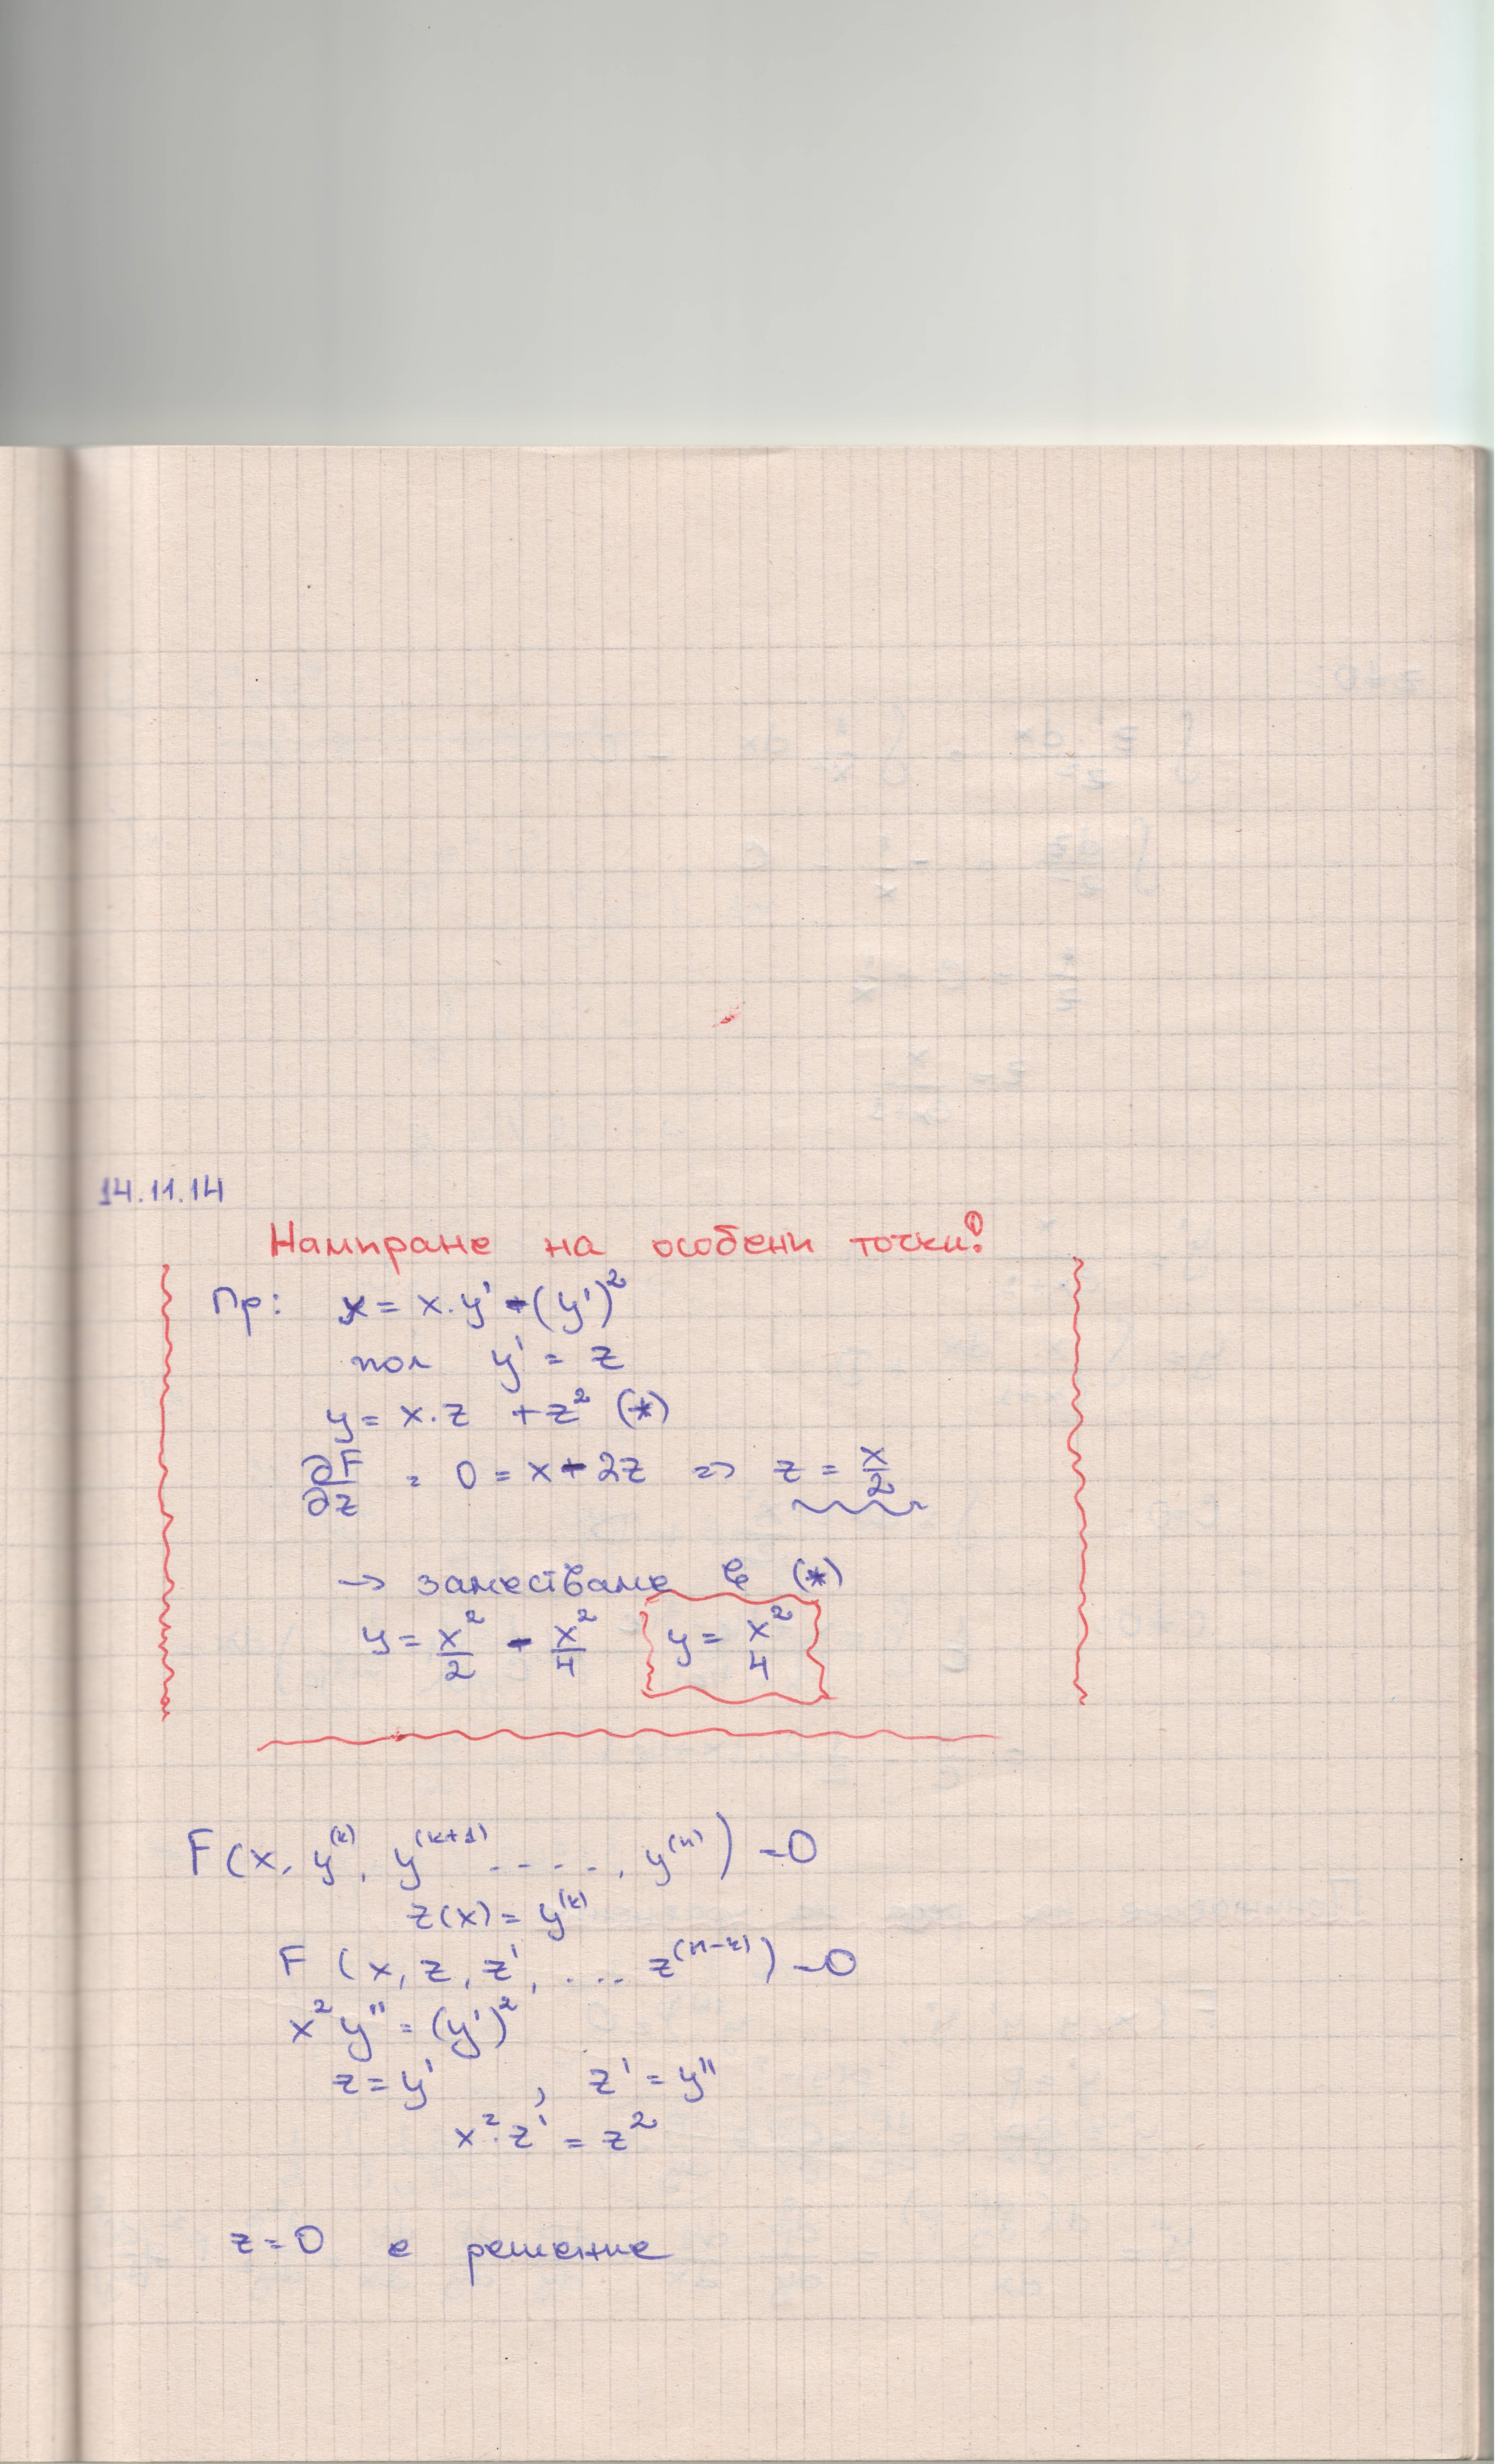 14.11.14
Намиране на особени точки!
Пр: y = x.y' - (y')²
пол y' = z
y = x.z + z² (*)
∂F/∂z = 0 = x - 2z => z = x/2
→ заместваме в (*)
y = x²/2 - x²/4 y = x²/4
F(x, y⁽ᵏ⁾, y⁽ᵏ⁺¹⁾ ....., y⁽ⁿ⁾) = 0
z(x) = y⁽ᵏ⁾
F (x, z, z', ... z⁽ⁿ⁻ᵏ⁾) = 0
x² y'' = (y')²
z = y' , z' = y''
x².z' = z²
z = 0 е решение